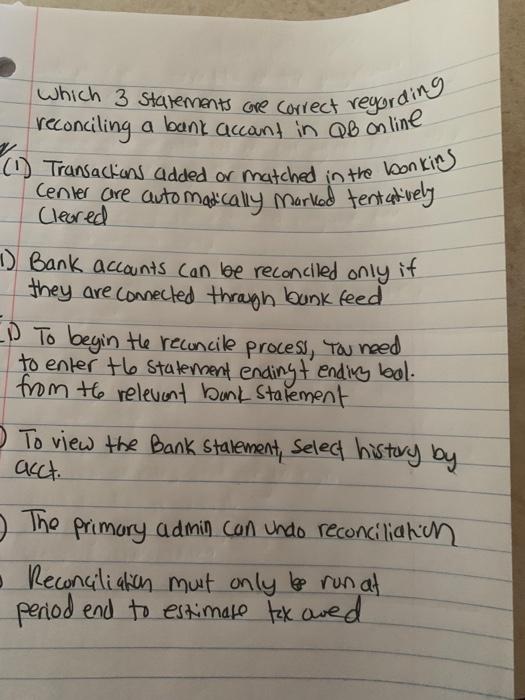 Which 3 statements are correct regarding
reconciling a bank account in QB online
(1) Transactions added or matched in the banking
center are automatically marked tentatively
Cleared
1) Bank accounts can be reconciled only if
they are connected through bank feed
(1) To begin the reconcile process, You need
to enter the statement ending + ending bal.
from the relevant bank statement
) To view the Bank statement, select history by
acct.
) The primary admin can undo reconciliation
Reconciliation must only be run at
period end to estimate tax owed